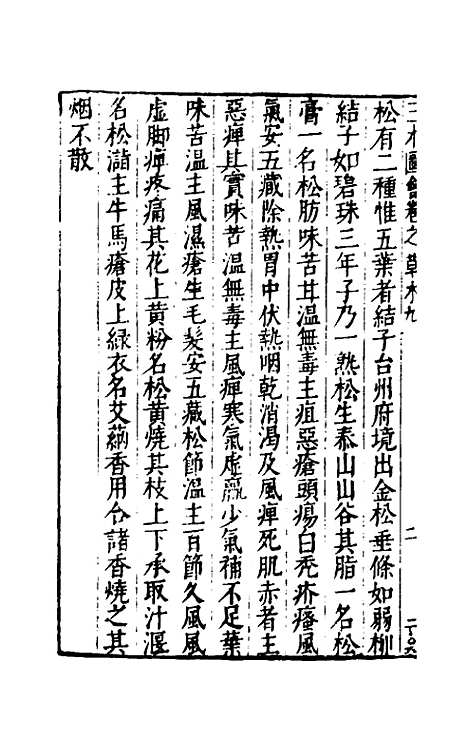 三才圖會卷之草木九
二
松有二種惟五葉者結子台州府境出金松垂條如弱柳
結子如碧珠三年子乃一熟松生泰山山谷其脂一名松
膏一名松肪味苦甘溫無毒主疽惡瘡頭瘍白禿疥瘙風
氣安五藏除熱胃中伏熱咽乾消渴及風痺死肌赤者主
惡痺其實味苦溫無毒主風痺寒氣虛羸少氣補不足葉
味苦溫主風濕瘡生毛髮安五藏松節溫主百節久風風
虛脚痺疼痛其花上黃粉名松黃燒其枝上下承取汁湮
名松㵽主牛馬瘡皮上綠衣名艾蒳香用合諸香燒之其
烟不散